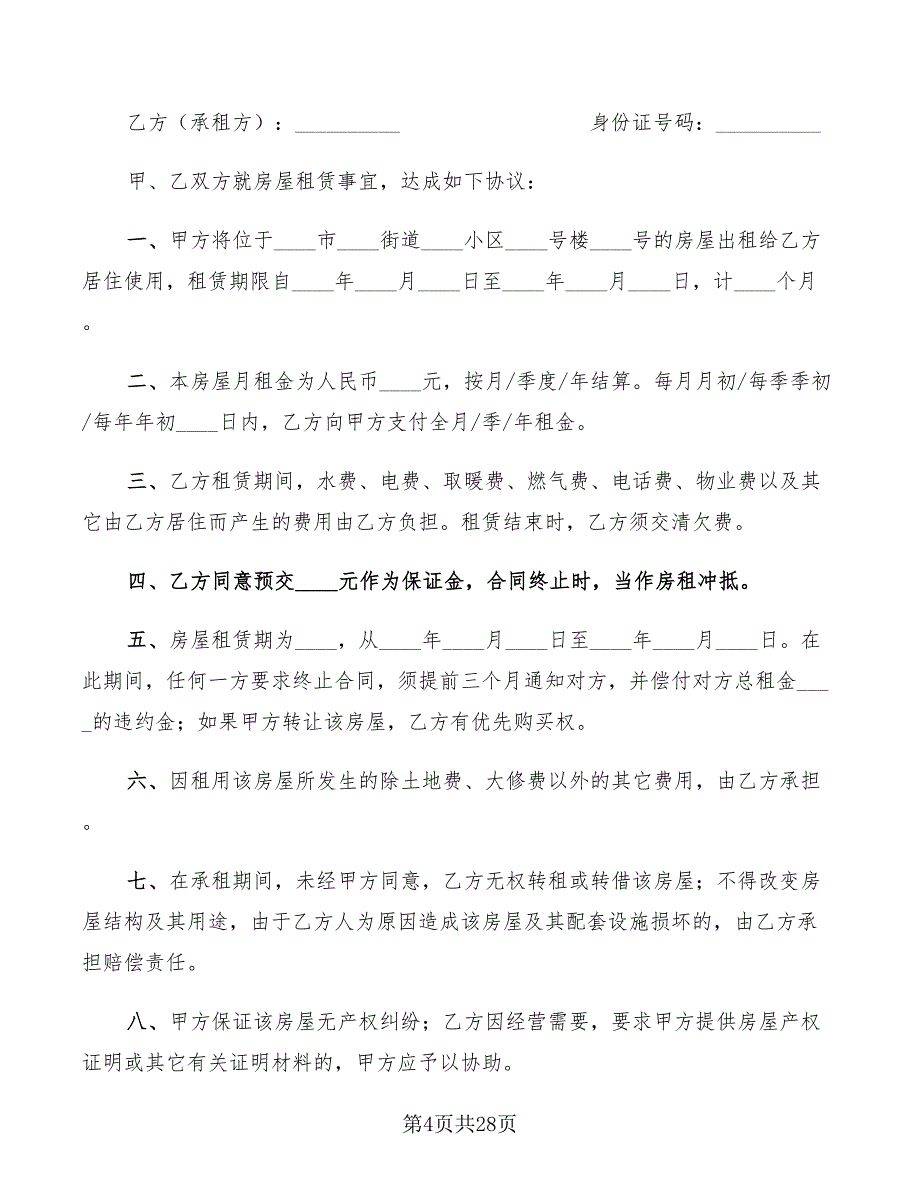 乙方（承租方）：__________ 身份证号码：__________
甲、乙双方就房屋租赁事宜，达成如下协议：
一、甲方将位于____市____街道____小区____号楼____号的房屋出租给乙方
居住使用，租赁期限自____年____月____日至____年____月____日，计____个月
。
二、本房屋月租金为人民币____元，按月/季度/年结算。每月月初/每季季初
/每年年初____日内，乙方向甲方支付全月/季/年租金。
三、乙方租赁期间，水费、电费、取暖费、燃气费、电话费、物业费以及其
它由乙方居住而产生的费用由乙方负担。租赁结束时，乙方须交清欠费。
四、乙方同意预交____元作为保证金，合同终止时，当作房租冲抵。
五、房屋租赁期为____，从____年____月____日至____年____月____日。在
此期间，任何一方要求终止合同，须提前三个月通知对方，并偿付对方总租金___
_的违约金；如果甲方转让该房屋，乙方有优先购买权。
六、因租用该房屋所发生的除土地费、大修费以外的其它费用，由乙方承担
。
七、在承租期间，未经甲方同意，乙方无权转租或转借该房屋；不得改变房
屋结构及其用途，由于乙方人为原因造成该房屋及其配套设施损坏的，由乙方承
担赔偿责任。
八、甲方保证该房屋无产权纠纷；乙方因经营需要，要求甲方提供房屋产权
证明或其它有关证明材料的，甲方应予以协助。
第4页共28页